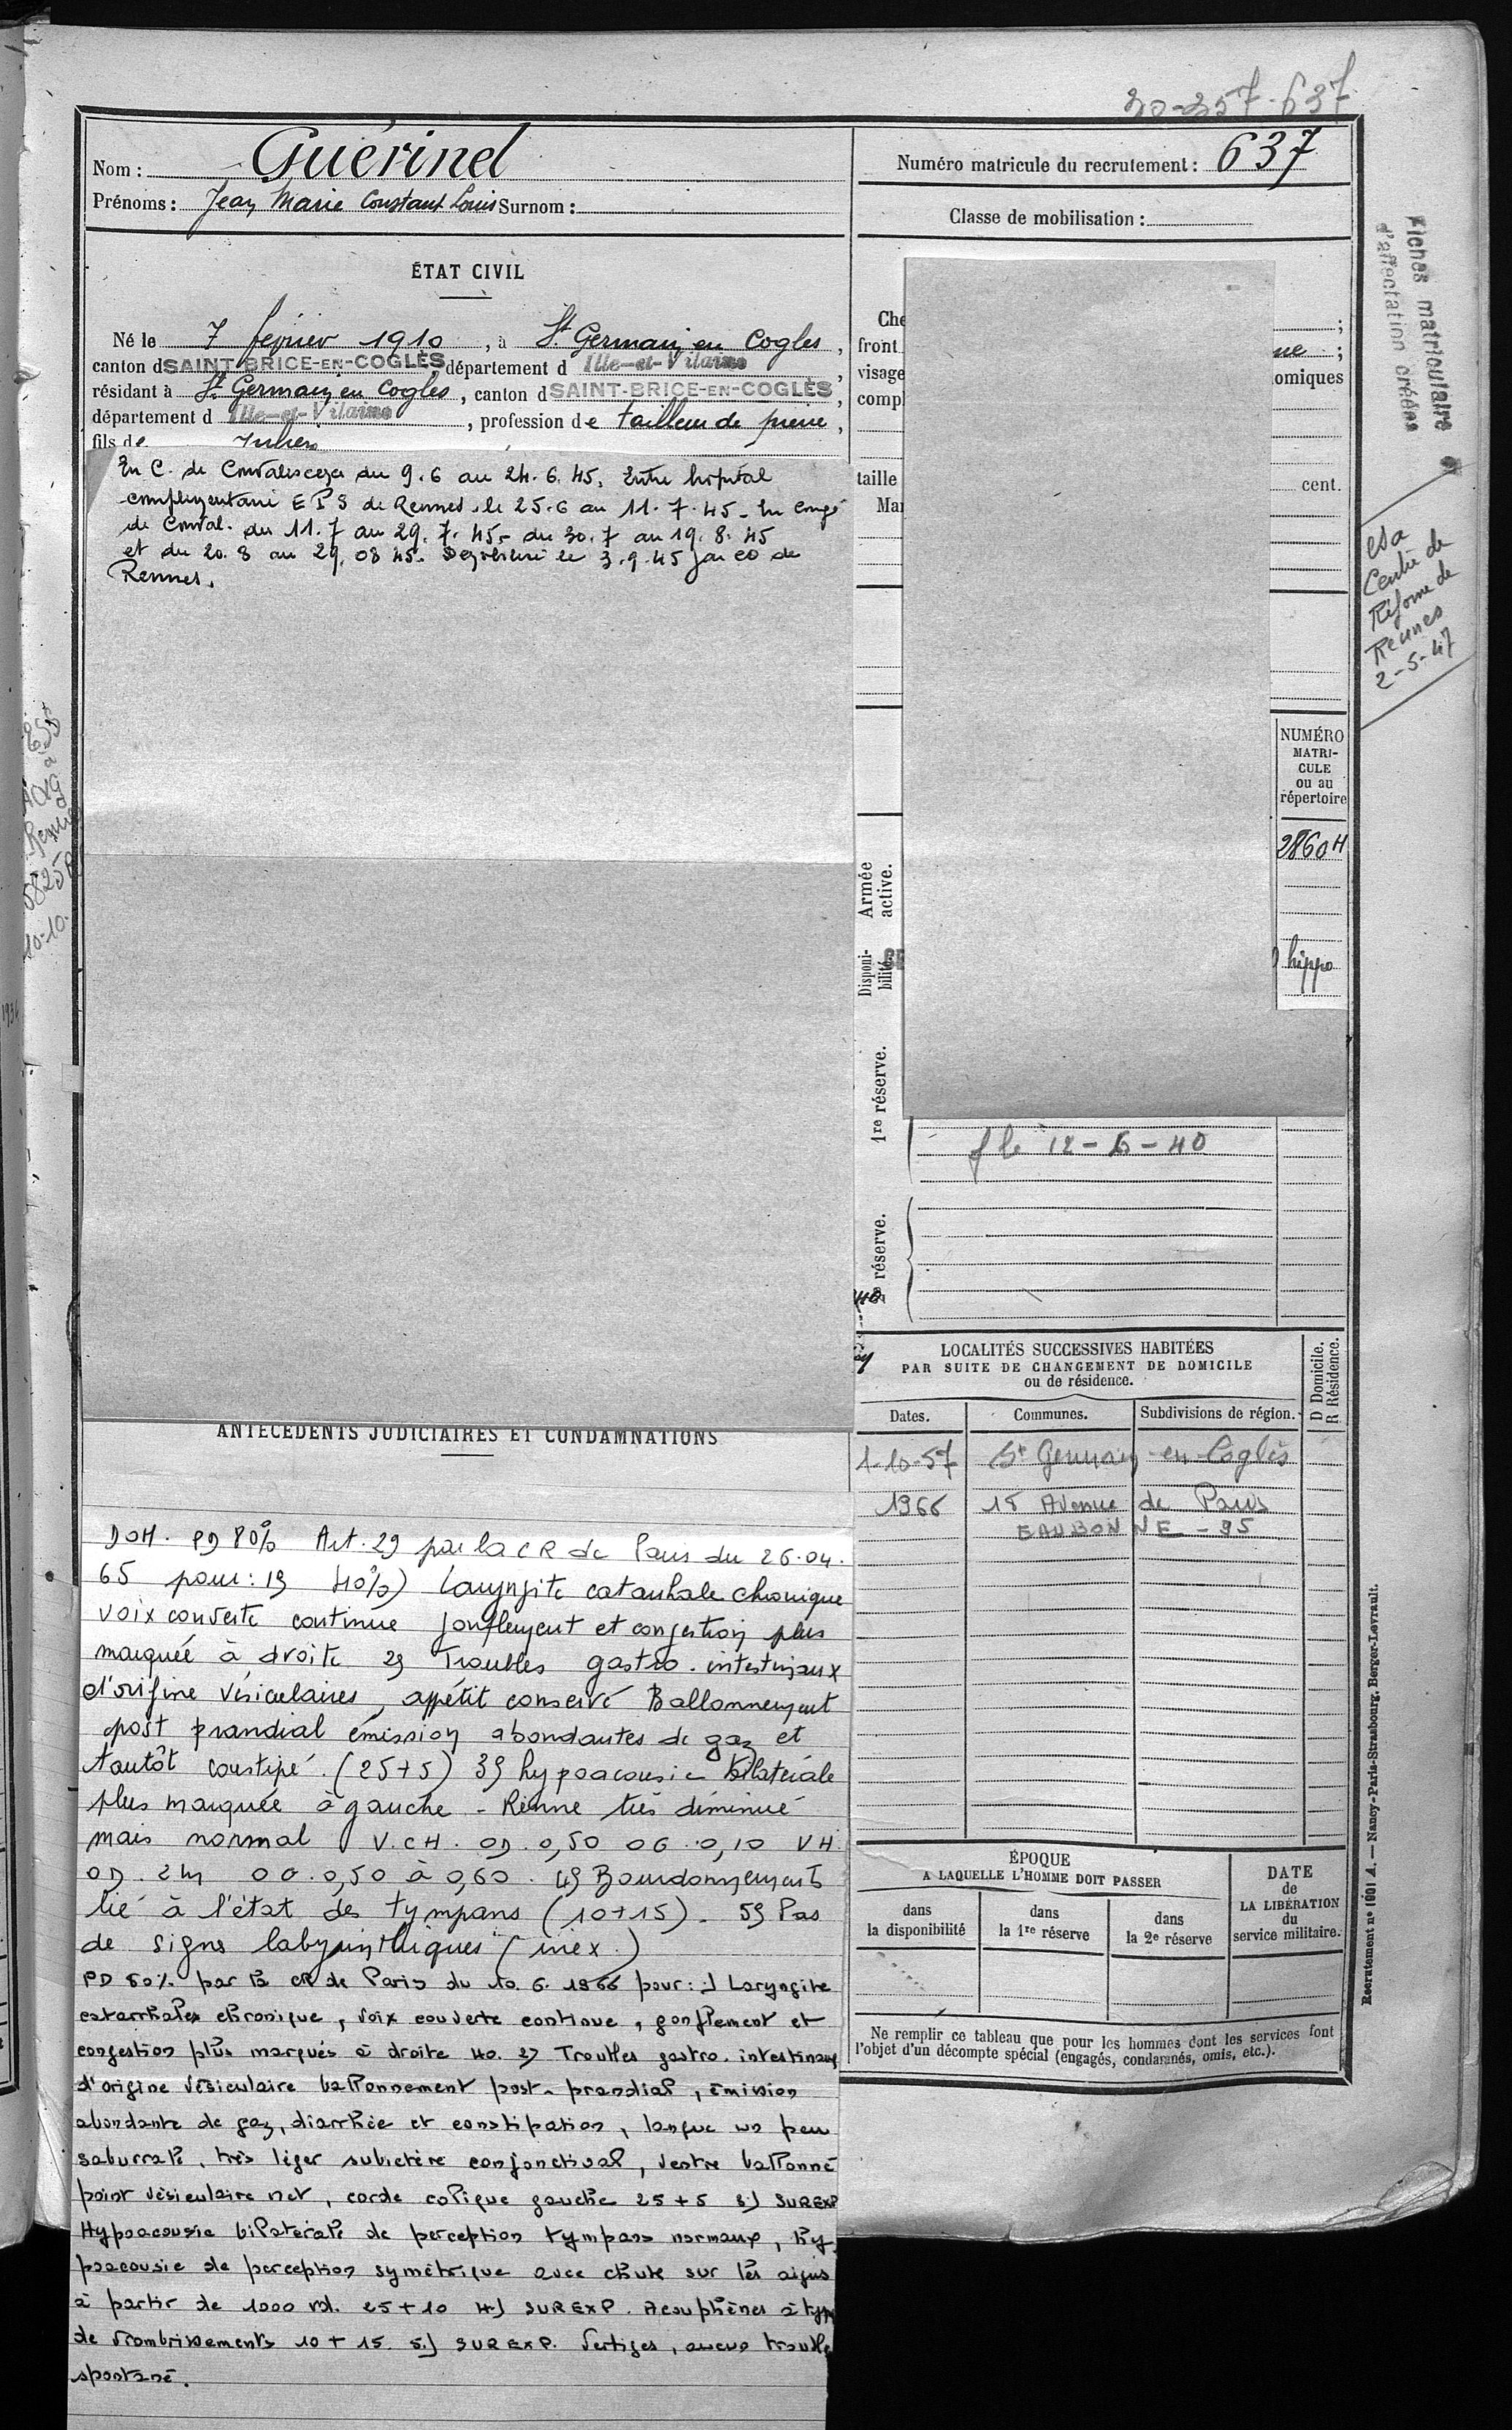 30-357-637
Nom : Guérinel
Prénoms : Jean Marie Constant Louis Surnom :
Numéro matricule du recrutement : 637
Classe de mobilisation :
ÉTAT CIVIL
Né le 7 février 1910, à St Germain en Cogles,
canton d SAINT-BRICE-EN-COGLÈS, département d Ille-et-Vilaine,
résidant à St Germain en Cogles, canton d SAINT-BRICE-EN-COGLÈS,
département d Ille-et-Vilaine, profession de tailleur de pierre,
fils de Julien
En C. de Convalescence du 9.6 au 24.6.45. Entre hôpital
complémentaire E P S de Rennes le 25.6 au 11.7.45 - En congé
de Conval. du 11.7 au 29.7.45 - du 30.7 au 19.8.45
et du 20.8 au 29.08 45. Démobilisé le 3.9.45 par CD de
Rennes.
ANTÉCÉDENTS JUDICIAIRES ET CONDAMNATIONS
DOM. PD 80% Art. 29 par la CR de Paris du 26.04.
65 pour : 1) 40%) Laryngite catarrhale chronique
voix couverte continue gonflement et congestion plus
marquée à droite 2) Troubles gastro-intestinaux
d'origine vésiculaires, appétit conservé Ballonnement
post prandial émission abondantes de gaz et
tantôt constipé. (25+5) 3) hypoacousie bilatérale
plus marquée à gauche - Rinne très diminué
mais normal V.CH. OD. 0,50 OG. 0,10 VH.
OD. 2m OG. 0,50 à 0,60. 4) Bourdonnements
lié à l'état des tympans (10+15). 5) Pas
de signes labyrinthiques (inex.)
PD 80% par la CR de Paris du 10.6.1966 pour : 1) Laryngite
catarrhale chronique, voix couverte continue, gonflement et
congestion plus marqués à droite 40. 2) Troubles gastro-intestinaux
d'origine vésiculaire ballonnement post-prandial, émission
abondante de gaz, diarrhée et constipation, langue un peu
saburrale, très léger subictère conjonctival, ventre ballonné
point vésiculaire net, corde colique gauche 25+5 3) SUREXP
Hypoacousie bilatérale de perception tympans normaux, hy-
poacousie de perception symétrique avec chute sur les aigus
à partir de 1000 vd. 25+10 4) SUREXP. Acouphènes à type
de vrombissements 10+15. 5) SUREXP. Vertiges, aucun trouble
spontané.
Che
front
visage
comp
taille
Mar
;
ne ;
omiques
cent.
NUMÉRO
MATRI-
CULE
ou au
répertoire
2860H
hippo
Armée
active.
Disponi-
bilité.
1re réserve.
f le 12-6-40
2e réserve.
LOCALITÉS SUCCESSIVES HABITÉES
PAR SUITE DE CHANGEMENT DE DOMICILE
ou de résidence.
D Domicile.
R Résidence.
Dates. Communes. Subdivisions de région.
1-10-57 St Germain-en-Coglès
1966 15 Avenue de Paris
EAUBONNE - 95
ÉPOQUE
A LAQUELLE L'HOMME DOIT PASSER
dans
la disponibilité
dans
la 1re réserve
dans
la 2e réserve
DATE
de
LA LIBÉRATION
du
service militaire.
Ne remplir ce tableau que pour les hommes dont les services font
l'objet d'un décompte spécial (engagés, condamnés, omis, etc.).
Fiches matriculaire
d'affectation créées
Centre de
Réforme de
Rennes
2-5-47
Recrutement n° 1601 A. — Nancy-Paris-Strasbourg, Berger-Levrault.